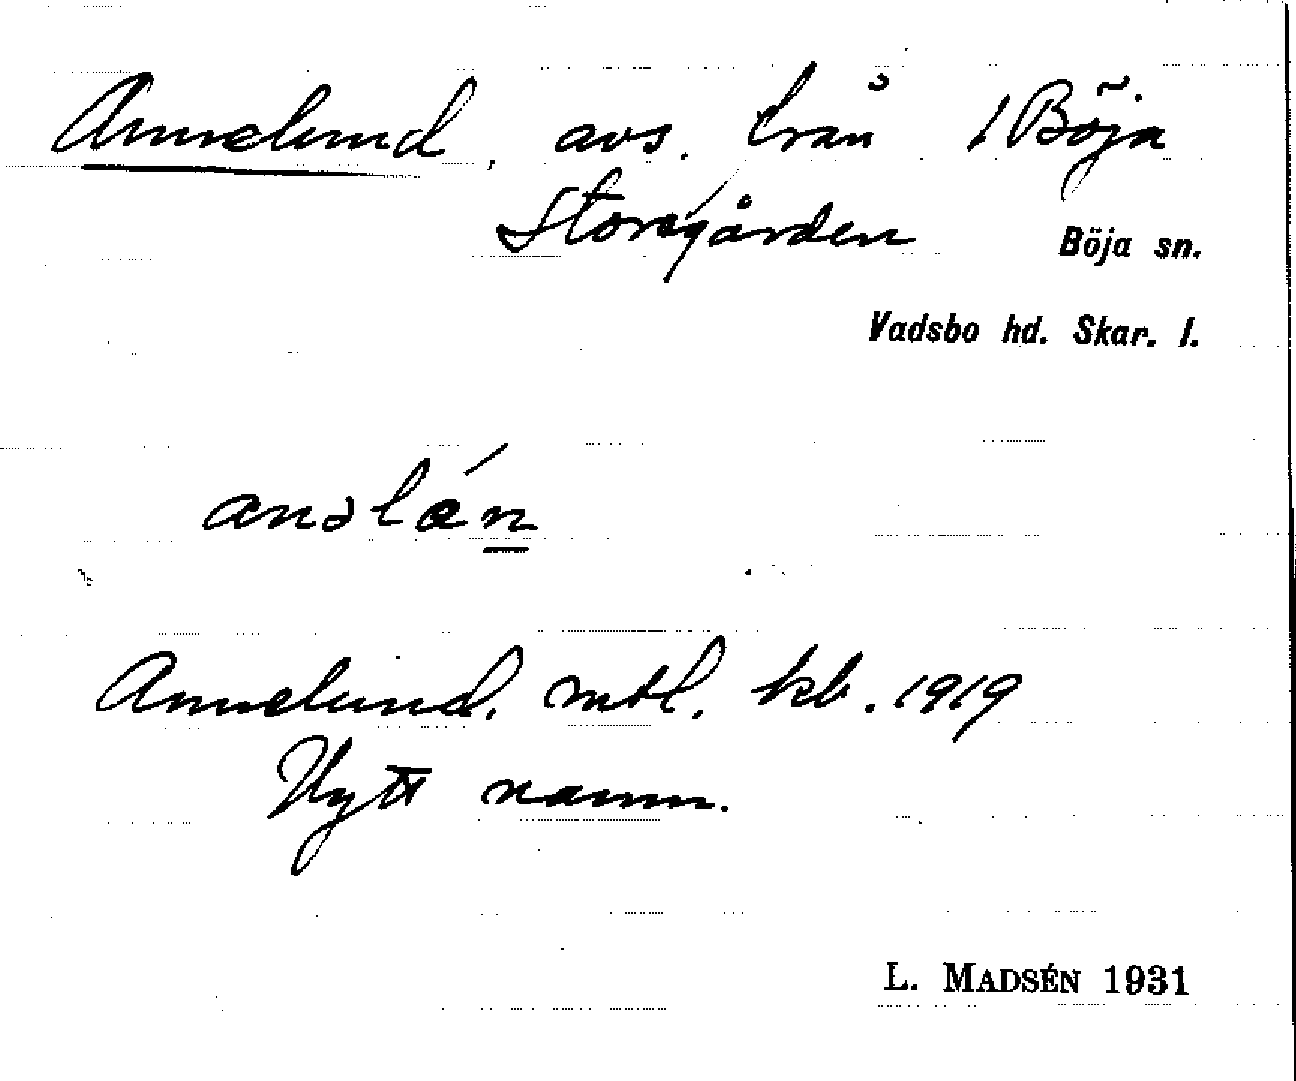 Annelund, avs. från 1 Böja
Storegården
Böja sn.
Vadsbo hd. Skar. l.
Annelund, mtl. kb. 1919
Nytt namn.
L. MADSÉN 1931